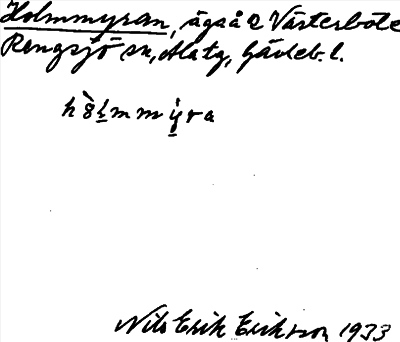 Holmmyran, ägså 2 Västerbote
Rengsjö sn, Alata, Gävleb. l.
hò̈l̲mmy̲ra
Nils Erik Erikson 1933